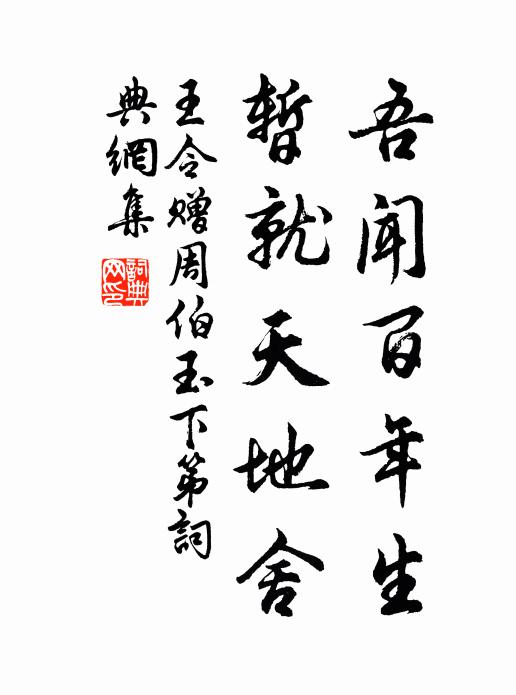 吾闻百年生
暂就天地舍
王令赠周伯玉下第词
典網集
詞典
网印